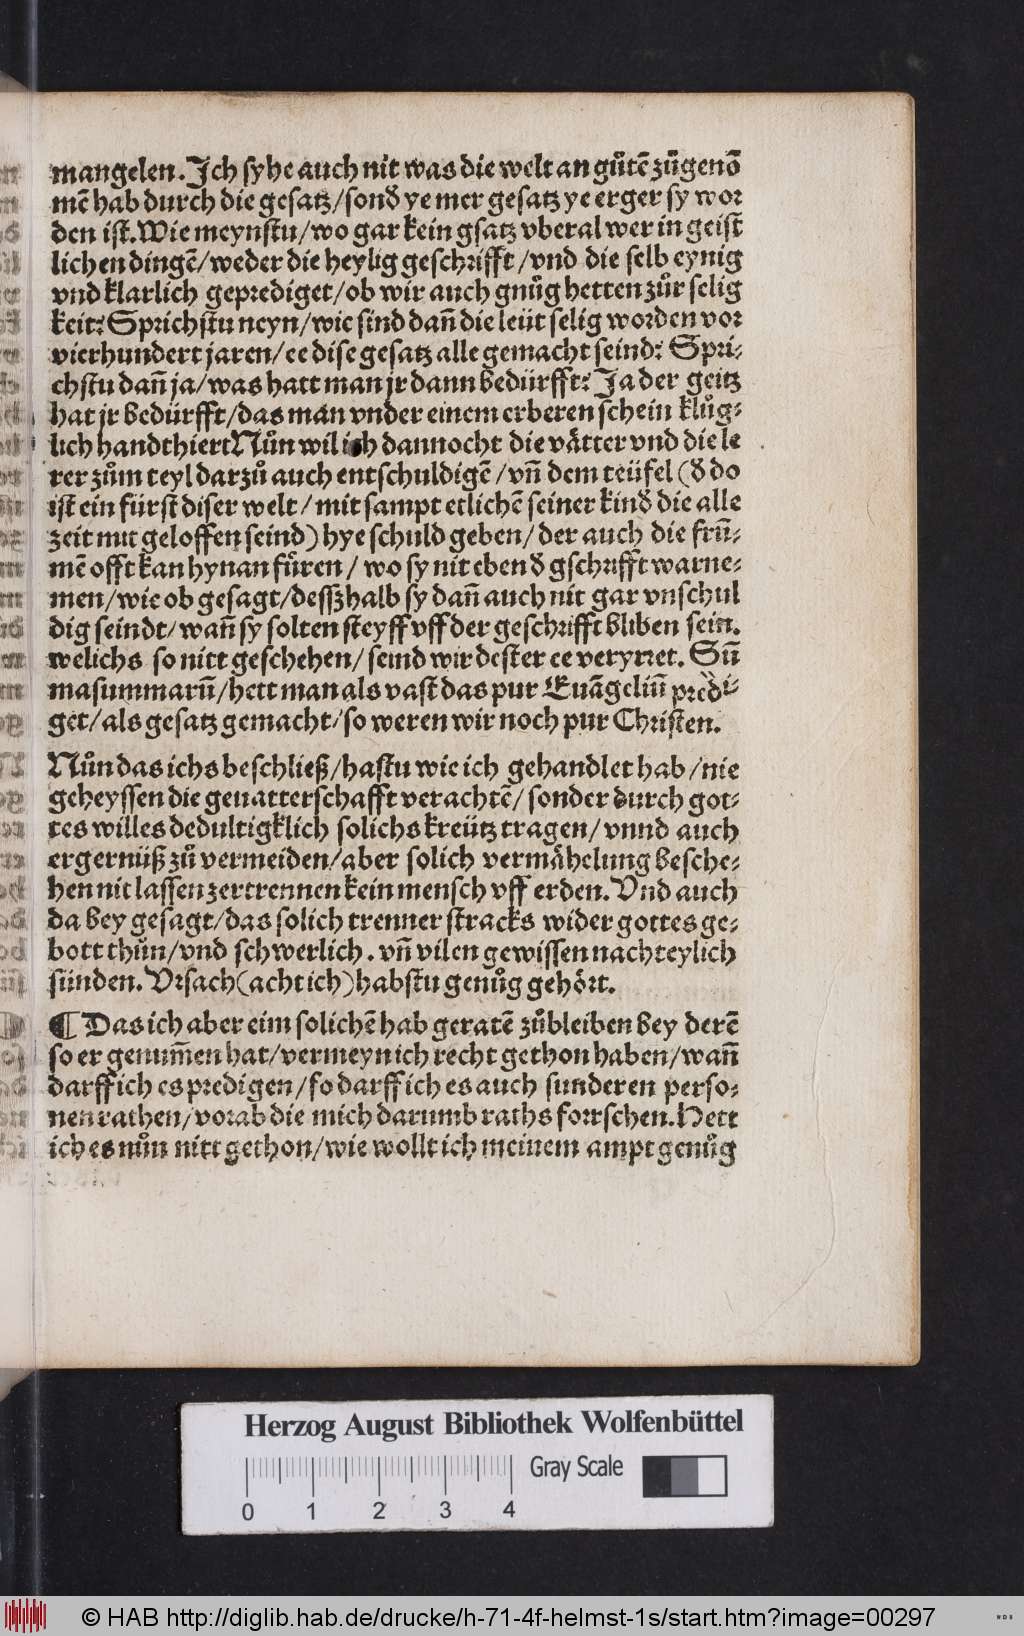 mangelen. Ich syhe auch nit was die welt an gůtē zůgenō
mē hab durch die gesatz/sonð ye mer gesatz ye erger sy wor
den ist. Wie meynstu/wo gar kein gsatz vberal wer in geist
lichen dingē/weder die heylig geschrifft/vnd die selb eynig
vnd klarlich geprediget/ob wir auch gnůg hetten zůr selig
keit: Sprichstu neyn/wie sind dañ die leüt selig worden vor
vierhundert jaren/ee dise gesatz alle gemacht seind: Spri⸗
chstu dañ ja/was hatt man jr dann bedürfft: Ja der geitz
hat jr bedürfft/das man vnder einem erberen schein klůg⸗
lich handthiert Nůn wil ich dannocht die vätter vnd die le
rer zům teyl darzů auch entschuldigē/vñ dem teüfel (ð do
ist ein fürst diser welt/mit sampt etlichē seiner kinð die alle
zeit mit geloffen seind) hye schuld geben/der auch die frū⸗
mē offt kan hynan fůren/wo sy nit eben ð gschrifft warne⸗
men/wie ob gesagt/desszhalb sy dañ auch nit gar vnschul
dig seindt/wañ sy solten steyff vff der geschrifft bliben sein.
welichs so nitt geschehen/seind wir dester ee veryrret. Sū
masummarū/hett man als vast das pur Euāgeliū predi⸗
get/als gesatz gemacht/so weren wir noch pur Christen.
Nůn das ichs beschließ/hastu wie ich gehandlet hab/nie
geheyssen die geuatterschafft verachtē/sonder durch got⸗
tes willes dedultigklich solichs kreütz tragen/vnnd auch
ergernüß zů vermeiden/aber solich vermähelung besche⸗
hen nit lassen zertrennen kein mensch vff erden. Vnd auch
da bey gesagt/das solich trenner stracks wider gottes ge⸗
bott thůn/vnd schwerlich. vñ vilen gewissen nachteylich
sünden. Vrsach (acht ich) habstu genůg gehört.
¶ Das ich aber eim solichē hab geratē zůbleiben bey derē
so er genum̄en hat/vermeyn ich recht gethon haben/wañ
darff ich es predigen/so darff ich es auch sunderen perso⸗
nen rathen/vorab die mich darumb raths forrschen. Hett
ich es nůn nitt gethon/wie wollt ich meinem ampt genůg
Herzog August Bibliothek Wolfenbüttel
Gray Scale
0 1 2 3 4
© HAB http://diglib.hab.de/drucke/h-71-4f-helmst-1s/start.htm?image=00297